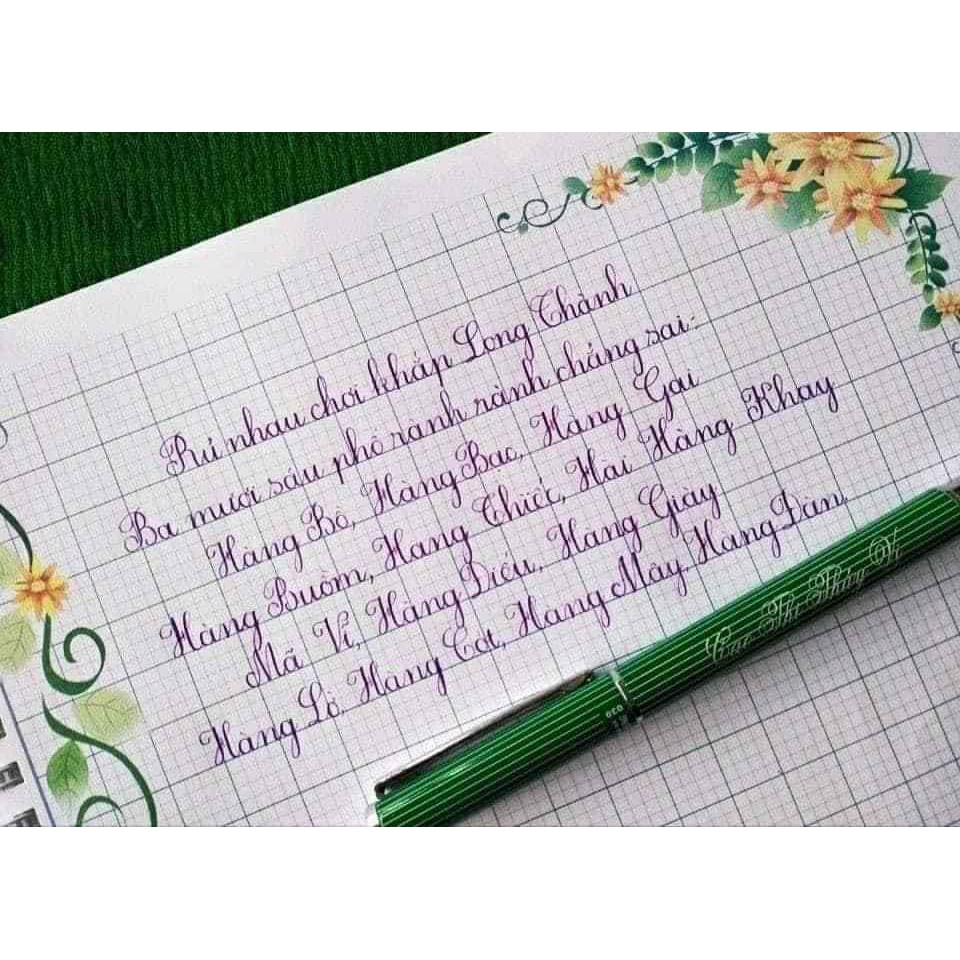 Rủ nhau chơi khắp Long Thành
Ba mươi sáu phố rành rành chẳng sai:
Hàng Bồ, Hàng Bạc, Hàng Gai
Hàng Buồm, Hàng Thiếc, Hài Hàng Khay
Mã Vĩ, Hàng Điếu, Hàng Giày
Hàng Lờ, Hàng Cót, Hàng Mây, Hàng Đàn,
Thị Thúy Vi